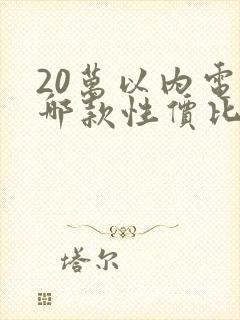 20萬以內電
哪款性價比
塔尔